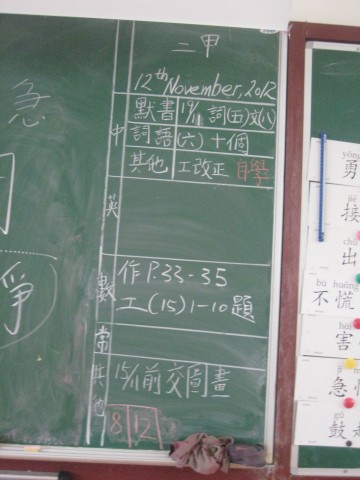 二甲
12th November, 2012
中 默書 19/11 詞(五)文(八)
詞語 (六) 十個
其他 工改正 自學
英
數 作 P.33-35
工(15) 1-10題
常
其他 15/11前交圖畫
8 12
急
yǒng
勇
jiē
接
chū
出
bù huāng
不慌
hài
害
jí
急
gǔ
鼓